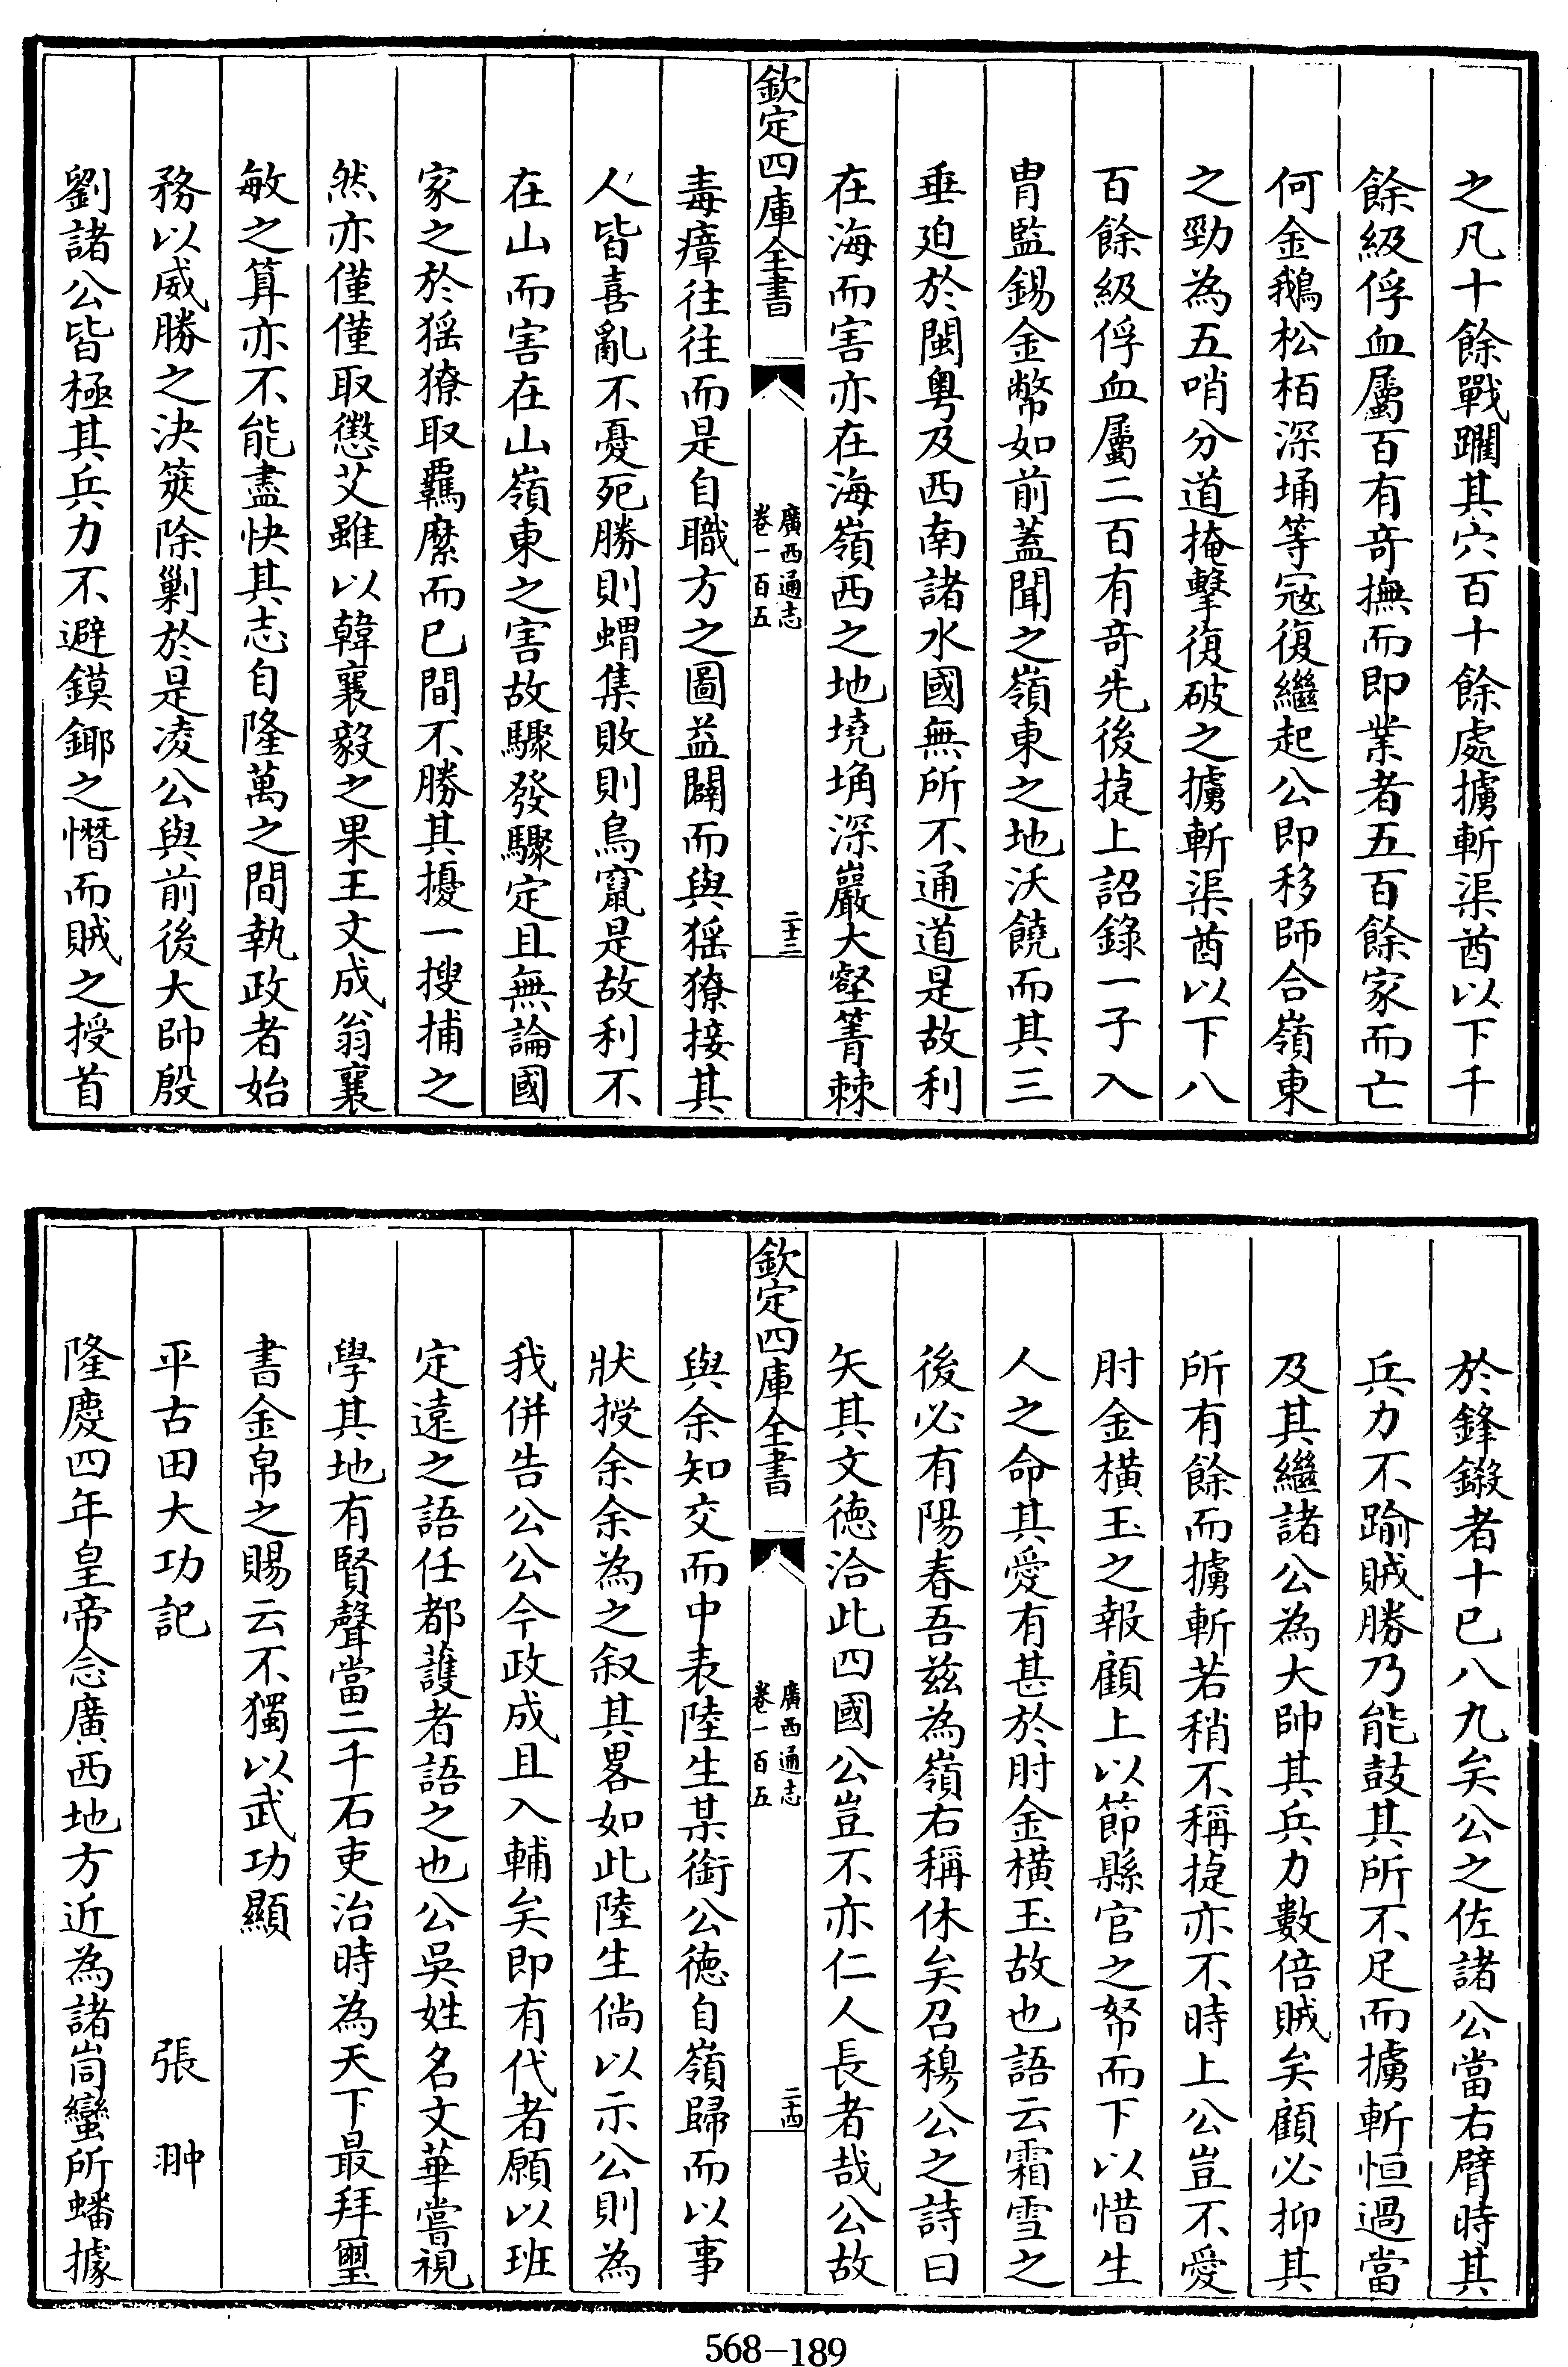 之凡十餘戰躪其穴百十餘處擄斬渠酋以下千
餘級俘血屬百有竒撫而即業者五百餘家而亡
何金鵝松栢深埇等冦復繼起公即移師合嶺東
之勁為五哨分道掩擊復破之擄斬渠酋以下八
百餘級俘血屬二百有竒先後捷上詔錄一子入
胄監錫金幣如前蓋聞之嶺東之地沃饒而其三
垂廹於閩粤及西南諸水國無所不通道是故利
在海而害亦在海嶺西之地墝埆深巖大壑箐棘
欽定四庫全書
廣西通志
卷一百五
二十三
毒瘴往往而是自職方之圖益闢而與猺獠接其
人皆喜亂不憂死勝則蝟集敗則鳥竄是故利不
在山而害在山嶺東之害故驟發驟定且無論國
家之於猺獠取羈縻而已間不勝其擾一搜捕之
然亦僅僅取懲艾雖以韓襄毅之果王文成翁襄
敏之算亦不能盡快其志自隆萬之間執政者始
務以威勝之決筴除剿於是凌公與前後大帥殷
劉諸公皆極其兵力不避鏌鋣之憯而賊之授首
於鋒鏃者十已八九矣公之佐諸公當右臂時其
兵力不踰賊勝乃能鼓其所不足而擄斬恒過當
及其繼諸公為大帥其兵力數倍賊矣顧必抑其
所有餘而擄斬若稍不稱捷亦不時上公豈不愛
肘金橫玉之報顧上以節縣官之帑而下以惜生
人之命其愛有甚於肘金橫玉故也語云霜雪之
後必有陽春吾兹為嶺右稱休矣召穆公之詩曰
矢其文德洽此四國公豈不亦仁人長者哉公故
欽定四庫全書
廣西通志
卷一百五
二十四
與余知交而中表陸生某銜公徳自嶺歸而以事
狀授余余為之叙其畧如此陸生倘以示公則為
我併告公公今政成且入輔矣即有代者願以班
定遠之語任都護者語之也公吳姓名文華嘗視
學其地有賢聲當二千石吏治時為天下最拜璽
書金帛之賜云不獨以武功顯
平古田大功記　張翀
隆慶四年皇帝念廣西地方近為諸峝蠻所蟠據
568-189